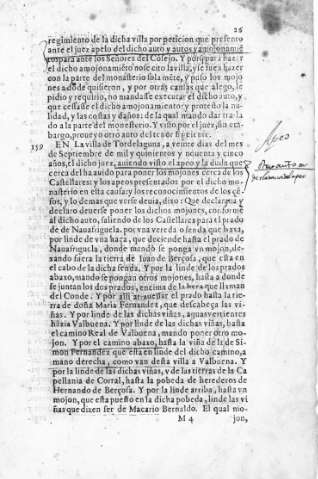 26
regimiento de la dicha villa por peticion que presento
ante el juez apelo del dicho auto y autos y amojonamie
to para ante los Señores del Cōsejo. Y porq̄ para hazer
el dicho amojonamiēto no se cito la villa, y se fue a hazer
con la parte del monasterio sola mēte, y puso los mojo
nes adōde quisieron, y por otras causas que alego, le
pidio y requirio, no mandasse executar el dicho auto, y
que cessasse el dicho amojonamiento: y protesto la nu-
lidad, y las costas y daños: de la qual mando dar trasla
do a la parte del monesterio. Y vistō por el juez, sin em-
bargo, proueyo otro auto del tenor siguiente.
EN La villa de Tordelaguna, a veinte dias del mes
de Septiembre de mil y quinientos y ochenta y cinco
años, el dicho juez, auiendo visto el apeo y la duda que
cerca del ha auido para poner los mojones cerca de los
Castellares: y los apeos presentados por el dicho mo-
nesterio en esta causa y los reconocimientos de los çes-
pos, y lo demas que verse deuia, dixo: Que declaraua y
declaro deuerse poner los dichos mojones, conforme
al dicho auto, saliendo de los Castellares para el prado
de Nauafriguela. por vna vereda o senda que haxa,
por linde de vna haza, que deciende hasta el prado de
Nauafriguela, donde mandō se ponga vn mojon, de-
xando fuera la tierra de Iuan de Berçosa, que esta en
el cabo de la dicha senda. Y por la linde de los prados
abaxo, mando se pongan otros mojones, hasta a donde
se juntan los dos prados, encima de la huera que llaman
del Conde. Y por alli atrauessar el prado hasta la tie-
rra de doña Maria Fernandez, que descabeça las vi-
ñas. Y por linde de las dichas viñas, aguas vertientes
hāzia Valbuena. Y por linde de las dichas viñas, hasta
el camino Real de Valbuena, mando poner otro mo-
jon. Y por el camino abaxo, hasta la viña de la de Si-
mon Fernandez que esta en linde del dicho camino, a
mano derecha, como van desta villa a Valbuena. Y
por la linde de las dichas viñas, y de las tierras de la Ca
pellania de Corral, hasta la pobeda de herederos de
Hernando de Berçosa. Y por la linde arriba, hasta vn
mojon, que esta puesto en la dicha pobeda, linde las vi
ñas que dizen ser de Macario Bernaldo. El qual mo-
M 4 jon,